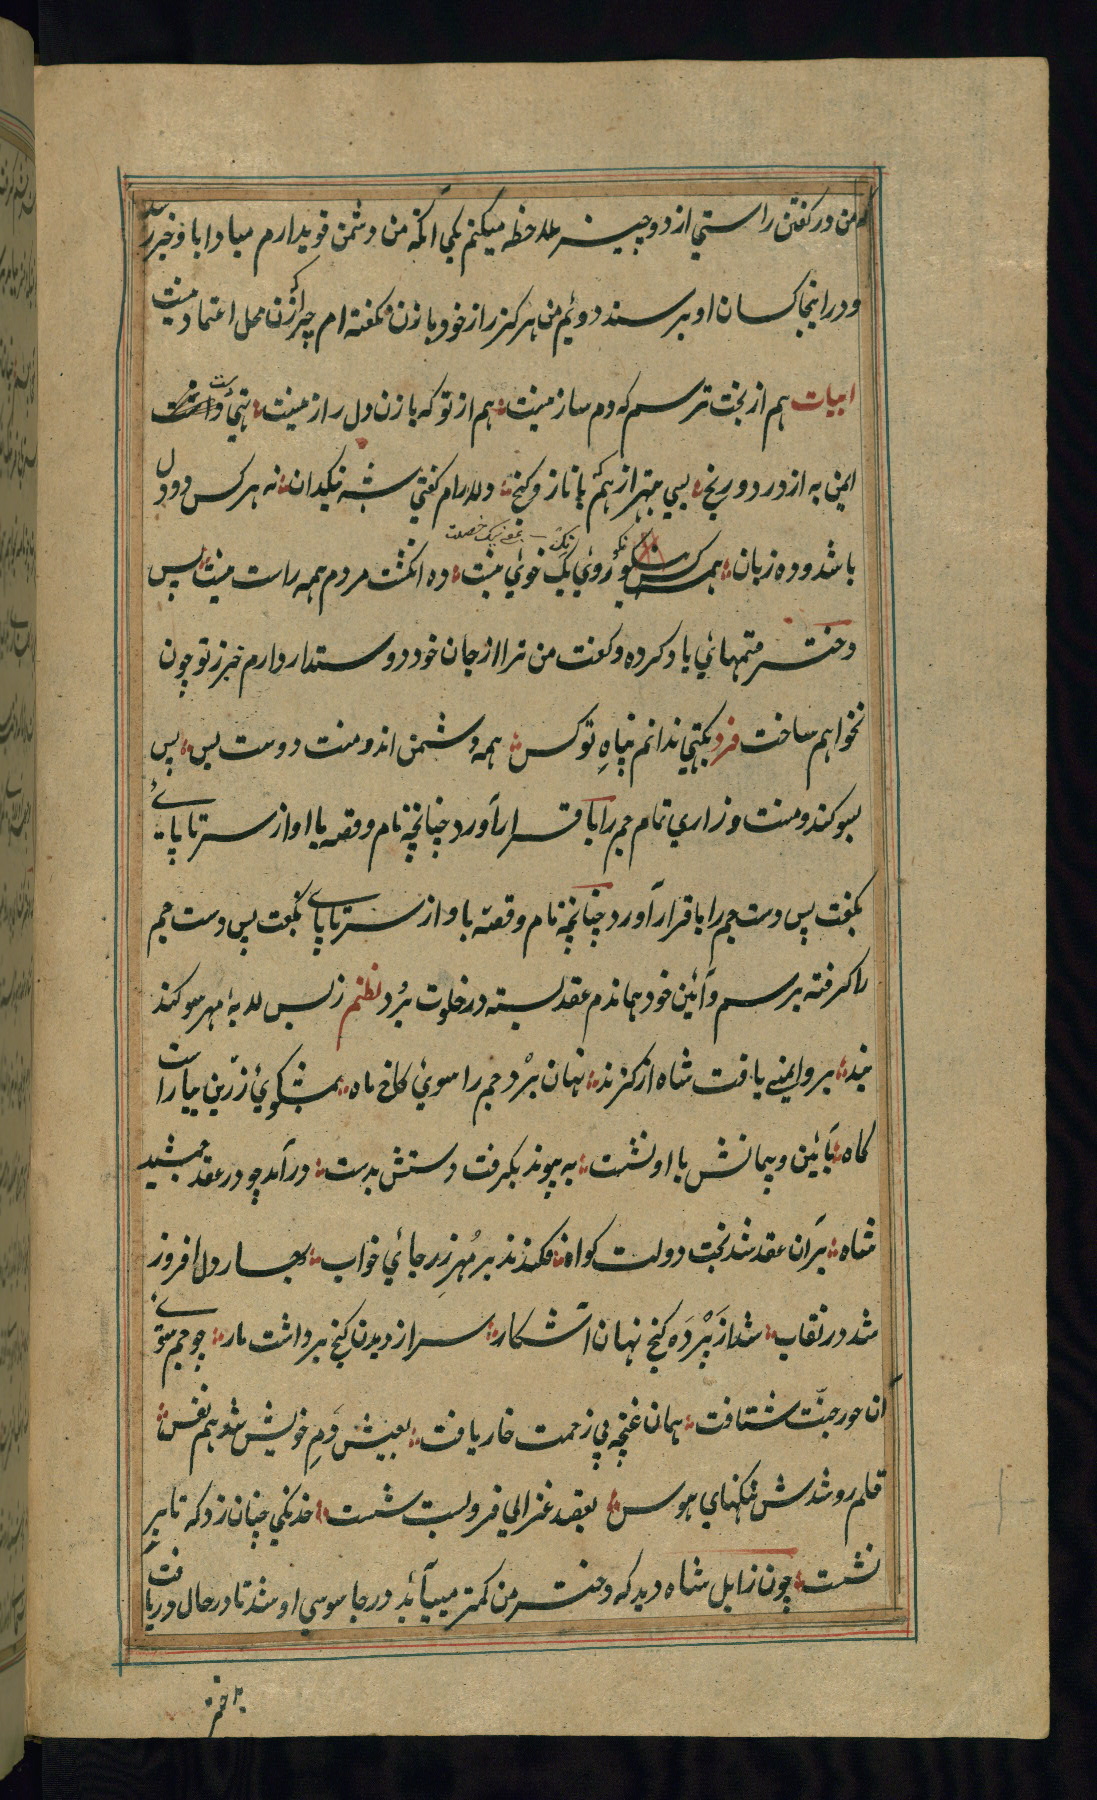 که من در کفتن راستي از دو چیز ملاحظه میکنم یکي آنکه من دشمن قوی دارم مبادا با و خبر رسد
و در اینجا کسان او برسند دوئم من هرکز راز خود با زن نکفته ام چرا که زن محل اعتماد نیست
ابیات هم از بخت ترسم که دم ساز نیست هم از تو که با زن دل راز نیست
ایمن به از درد و رنج بسي بهتر از هم با ناز و کنج دلارام کفتي نیکدان نه هر کس دو دل
باشد و ده زبان همه کس نکو روي نیک خوي نیست ده انکشت مردم همه راست نیست پس
دختر قسمهائي یاد کرده و کفت من ترا از جان خود دوستدار دارم خبر ز تو چون
نخواهم ساخت فرد بکیتي ندانم پناهِ تو کس همه دشمن اند و منت دوست بس پس
بسوکند و منت و زاري تمام جم را باقرار آورد چنانچه نام و قصه با او از سر تا پاے
بکفت پس دست جم را باقرار آورد چنانچه نام و قصه باو از سر تا پاے بکفت پس دست جم
را کرفته برسم و آئین خود هماندم عقد بسته در خلوت بُرد نظم ز بس لابه مهر سوکند
برو ایمنے یافت شاه از کزند نهان بُرد جم را سوئ کاخ ماه بمشکوئ زرّین بیاراست
کاه بآئین و پیمانش با او نشت به پیوند بکرفت دستش بدست در آمد چو در عقد جمشید
شاه بران عقد شد بخت دولت کواه فکندند بر مُهر زر جائي خواب بهار دل افروز
شد در نقاب شد از پَرْدَه کنج نهان آشکار سر از دیدن کنج برداشت مار چو جم سوے
آن حور جنّت شتافت همان غنچه بي زحمت خار یافت بعیش دمِ خویش شد هم نفس
قلم رو شدش تنکنهاي هوس بعقد غزالي فرو بست شست خدنکي چنان زد که تا پر
نشست چون زابل شاه دید که دختر من کمتر میآید در جاسوسي او شد تا در حال دریافت